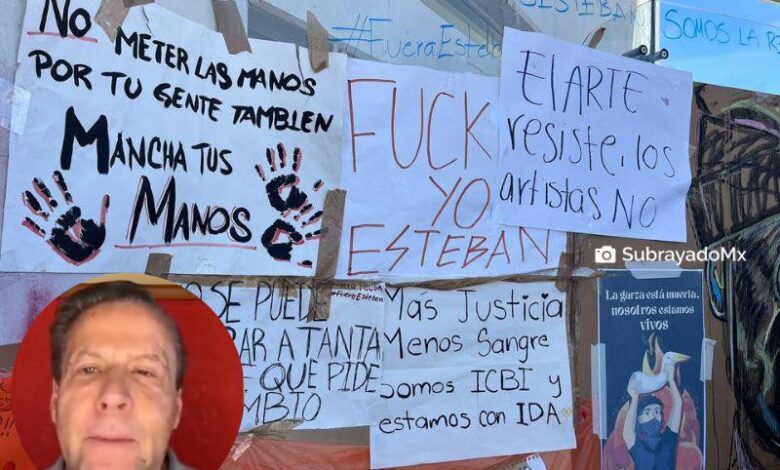 No METER LAS MANOS
POR TU GENTE TAMBIEN
MANCHA TUS
MANOS
#FueraEsteban
ESTEBAN
SOMOS LA
FUCK
YO
ESTEBAN
El ARTE
resiste, los
artistas NO
SubrayadoMx
SE PUEDE
A TANTA
QUE PIDE
MBIO
Más Justicia
Menos Sangre
Somos ICBI y
estamos con IDA
La garza está muerta,
nosotros estamos
vivos